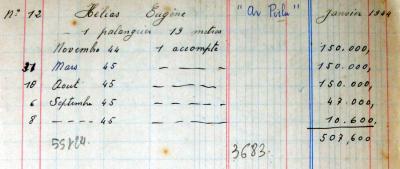 N° 12 Hélias Eugène "Ar Pilu" Janvier 1944
- 1 palangre 19 metres
Novembre 44 1 accompte 150.000,
31 Mars 45 - - - - 150.000,
18 Aout 45 - - - - 150.000,
6 Septembre 45 - - - - 47.000,
8 - - - - 45 - - - - 10.600,
507,600
55124.
3683.